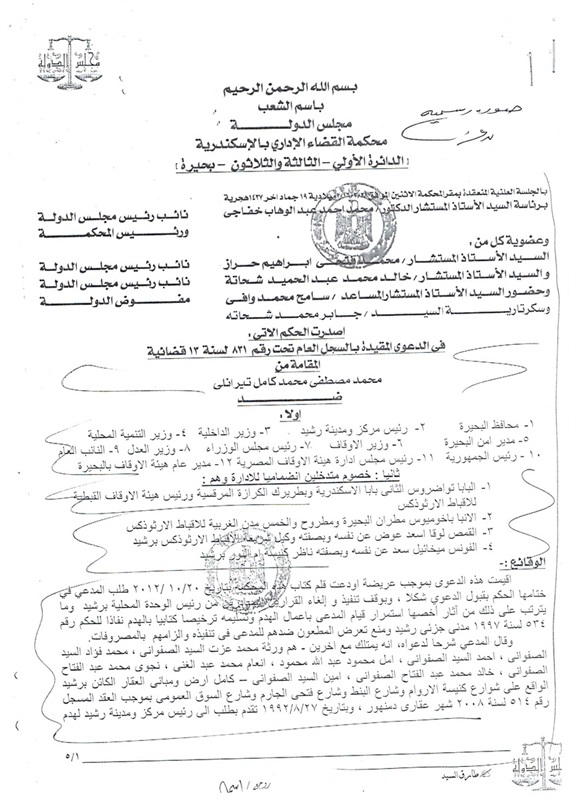 مجلس الدولة
صورة رسمية
بسم الله الرحمن الرحيم
باسم الشعب
مجلس الدولة
محكمة القضاء الإداري بالإسكندرية
( الدائرة الأولي - الثالثة والثلاثون - بحيرة )
بالجلسة العلنية المنعقدة بمقر المحكمة الاثنين الموافق ميلادية ١٩ جماد اخر ١٤٣٧ هجرية
برئاسة السيد الأستاذ المستشار الدكتور / محمد احمد عبد الوهاب خفاجي نائب رئيس مجلس الدولة
ورئيس المحكمة
وعضوية كل من :
السيد الأستاذ المستشار / محمد فتحى ابراهيم حراز نائب رئيس مجلس الدولة
و السيد الأستاذ المستشار / خالد محمد عبد الحميد شحاتة نائب رئيس مجلس الدولة
وحضور السيد الأستاذ المستشار المساعد / سامح محمد وافى مفوض الدولة
وسكرتارية السيد / جابر محمد شحاته
اصدرت الحكم الاتي :
فى الدعوى المقيدة بالسجل العام تحت رقم ٨٣١ لسنة ١٣ قضائية
المقامة من
محمد مصطفى محمد كامل تيرانلى
ضد
اولا :
١- محافظ البحيرة ٢- رئيس مركز ومدينة رشيد ٣- وزير الداخلية ٤- وزير التنمية المحلية
٥- مدير امن البحيرة ٦- وزير الاوقاف ٧- رئيس مجلس الوزراء ٨- وزير العدل ٩- النائب العام
١٠- رئيس الجمهورية ١١- رئيس مجلس ادارة هيئة الاوقاف المصرية ١٢- مدير عام هيئة الاوقاف بالبحيرة
ثانيا : خصوم متدخلين انضماميا للادارة وهم :
١- البابا تواضروس الثانى بابا الاسكندرية وبطريرك الكرازة المرقسية ورئيس هيئة الاوقاف القبطية
للاقباط الارثوذكس
٢- الانبا باخوميوس مطران البحيرة ومطروح والخمس مدن الغربية للاقباط الارثوذكس
٣- القمص لوقا اسعد عوض عن نفسه وبصفته وكيل شريعة الاقباط الارثوذكس برشيد
٤- القونس ميخائيل سعد عن نفسه وبصفته ناظر كنيسة ام النور برشيد
الوقائع :-
اقيمت هذه الدعوى بموجب عريضة اودعت قلم كتاب هذه المحكمة بتاريخ ٢٠١٢/١٠/٢٠ طلب المدعي في
ختامها الحكم بقبول الدعوي شكلا ، وبوقف تنفيذ و إلغاء القرارين من رئيس الوحدة المحلية برشيد وما
يترتب على ذلك من آثار أخصها استمرار قيام المدعي باعمال الهدم وتسليمه ترخيصا كتابيا بالهدم نفاذا للحكم رقم
٥٣٤ لسنة ١٩٩٧ مدنى جزئى رشيد ومنع تعرض المطعون ضدهم للمدعى فى تنفيذه وإلزامهم بالمصروفات.
وقال المدعي شرحا لدعواه، انه يمتلك مع اخرين - هم ورثة محمد عزت السيد الصفوانى ، محمد فؤاد السيد
الصفوانى ، احمد السيد الصفوانى ، امل محمود عبد الله محمود ، انعام محمد عبد الغنى ، نجوى محمد عبد الفتاح
الصفوانى ، خالد محمد عبد الفتاح الصفوانى ، امين السيد الصفوانى - كامل ارض ومبانى العقار الكائن برشيد
الواقع على شوارع كنيسة الاروام وشارع البنط وشارع فتحى الجارم وشارع السوق العمومى بموجب العقد المسجل
رقم ٥١٤ لسنة ٢٠٠٨ شهر عقارى دمنهور ، وبتاريخ ١٩٩٢/٨/٢٧ تقدم بطلب الى رئيس مركز ومدينة رشيد لهدم
٥/١
طارق السيد